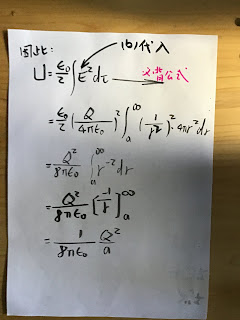 因此:
(b)代入
U = ε₀/2 ∫ E² dτ 必背公式
= ε₀/2 (Q/4πε₀)² ∫ₐ^∞ (1/r²)² · 4πr² dr
= Q²/8πε₀ ∫ₐ^∞ r⁻² dr
= Q²/8πε₀ [-1/r]ₐ^∞
= 1/8πε₀ Q²/a